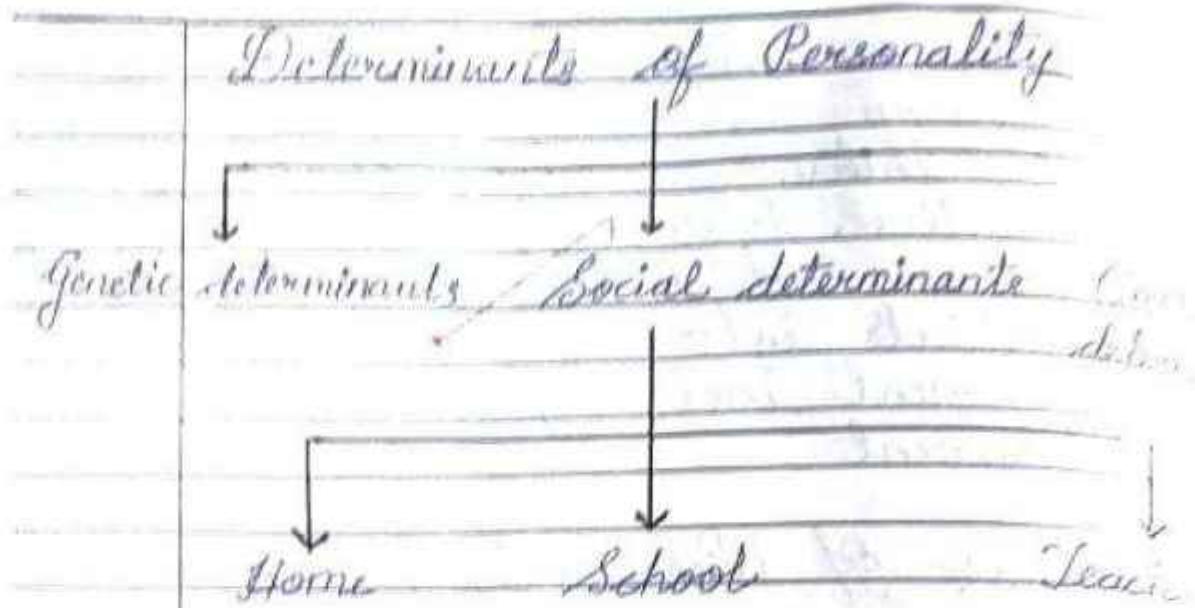 Determinants of Personality
Genetic determinants Social determinants
Home School